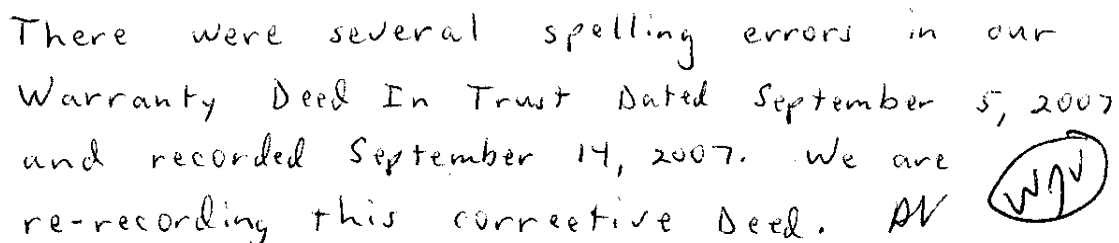 There were several spelling errors in our
Warranty Deed In Trust Dated September 5, 2007
and recorded September 14, 2007. We are
re-recording this corrective Deed. DV WJV